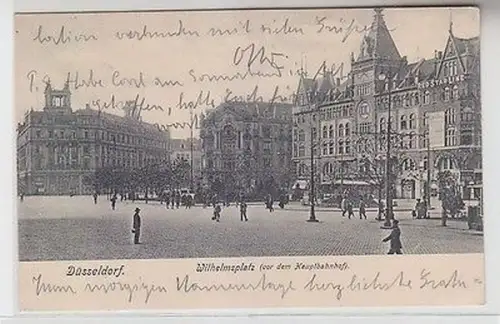 verbunden mit vielen Grüßen
Otto.
P.S. Habe Carl am Sonnabend
getroffen, hatte
Düsseldorf. Wilhelmsplatz (vor dem Hauptbahnhof).
Zum morgigen Namenstage herzliche Gratu-